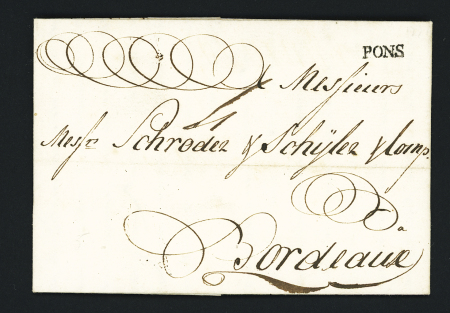 PONS
Messieurs
4
Messrs Schröder & Schÿler & Comp.
a
Bordeaux